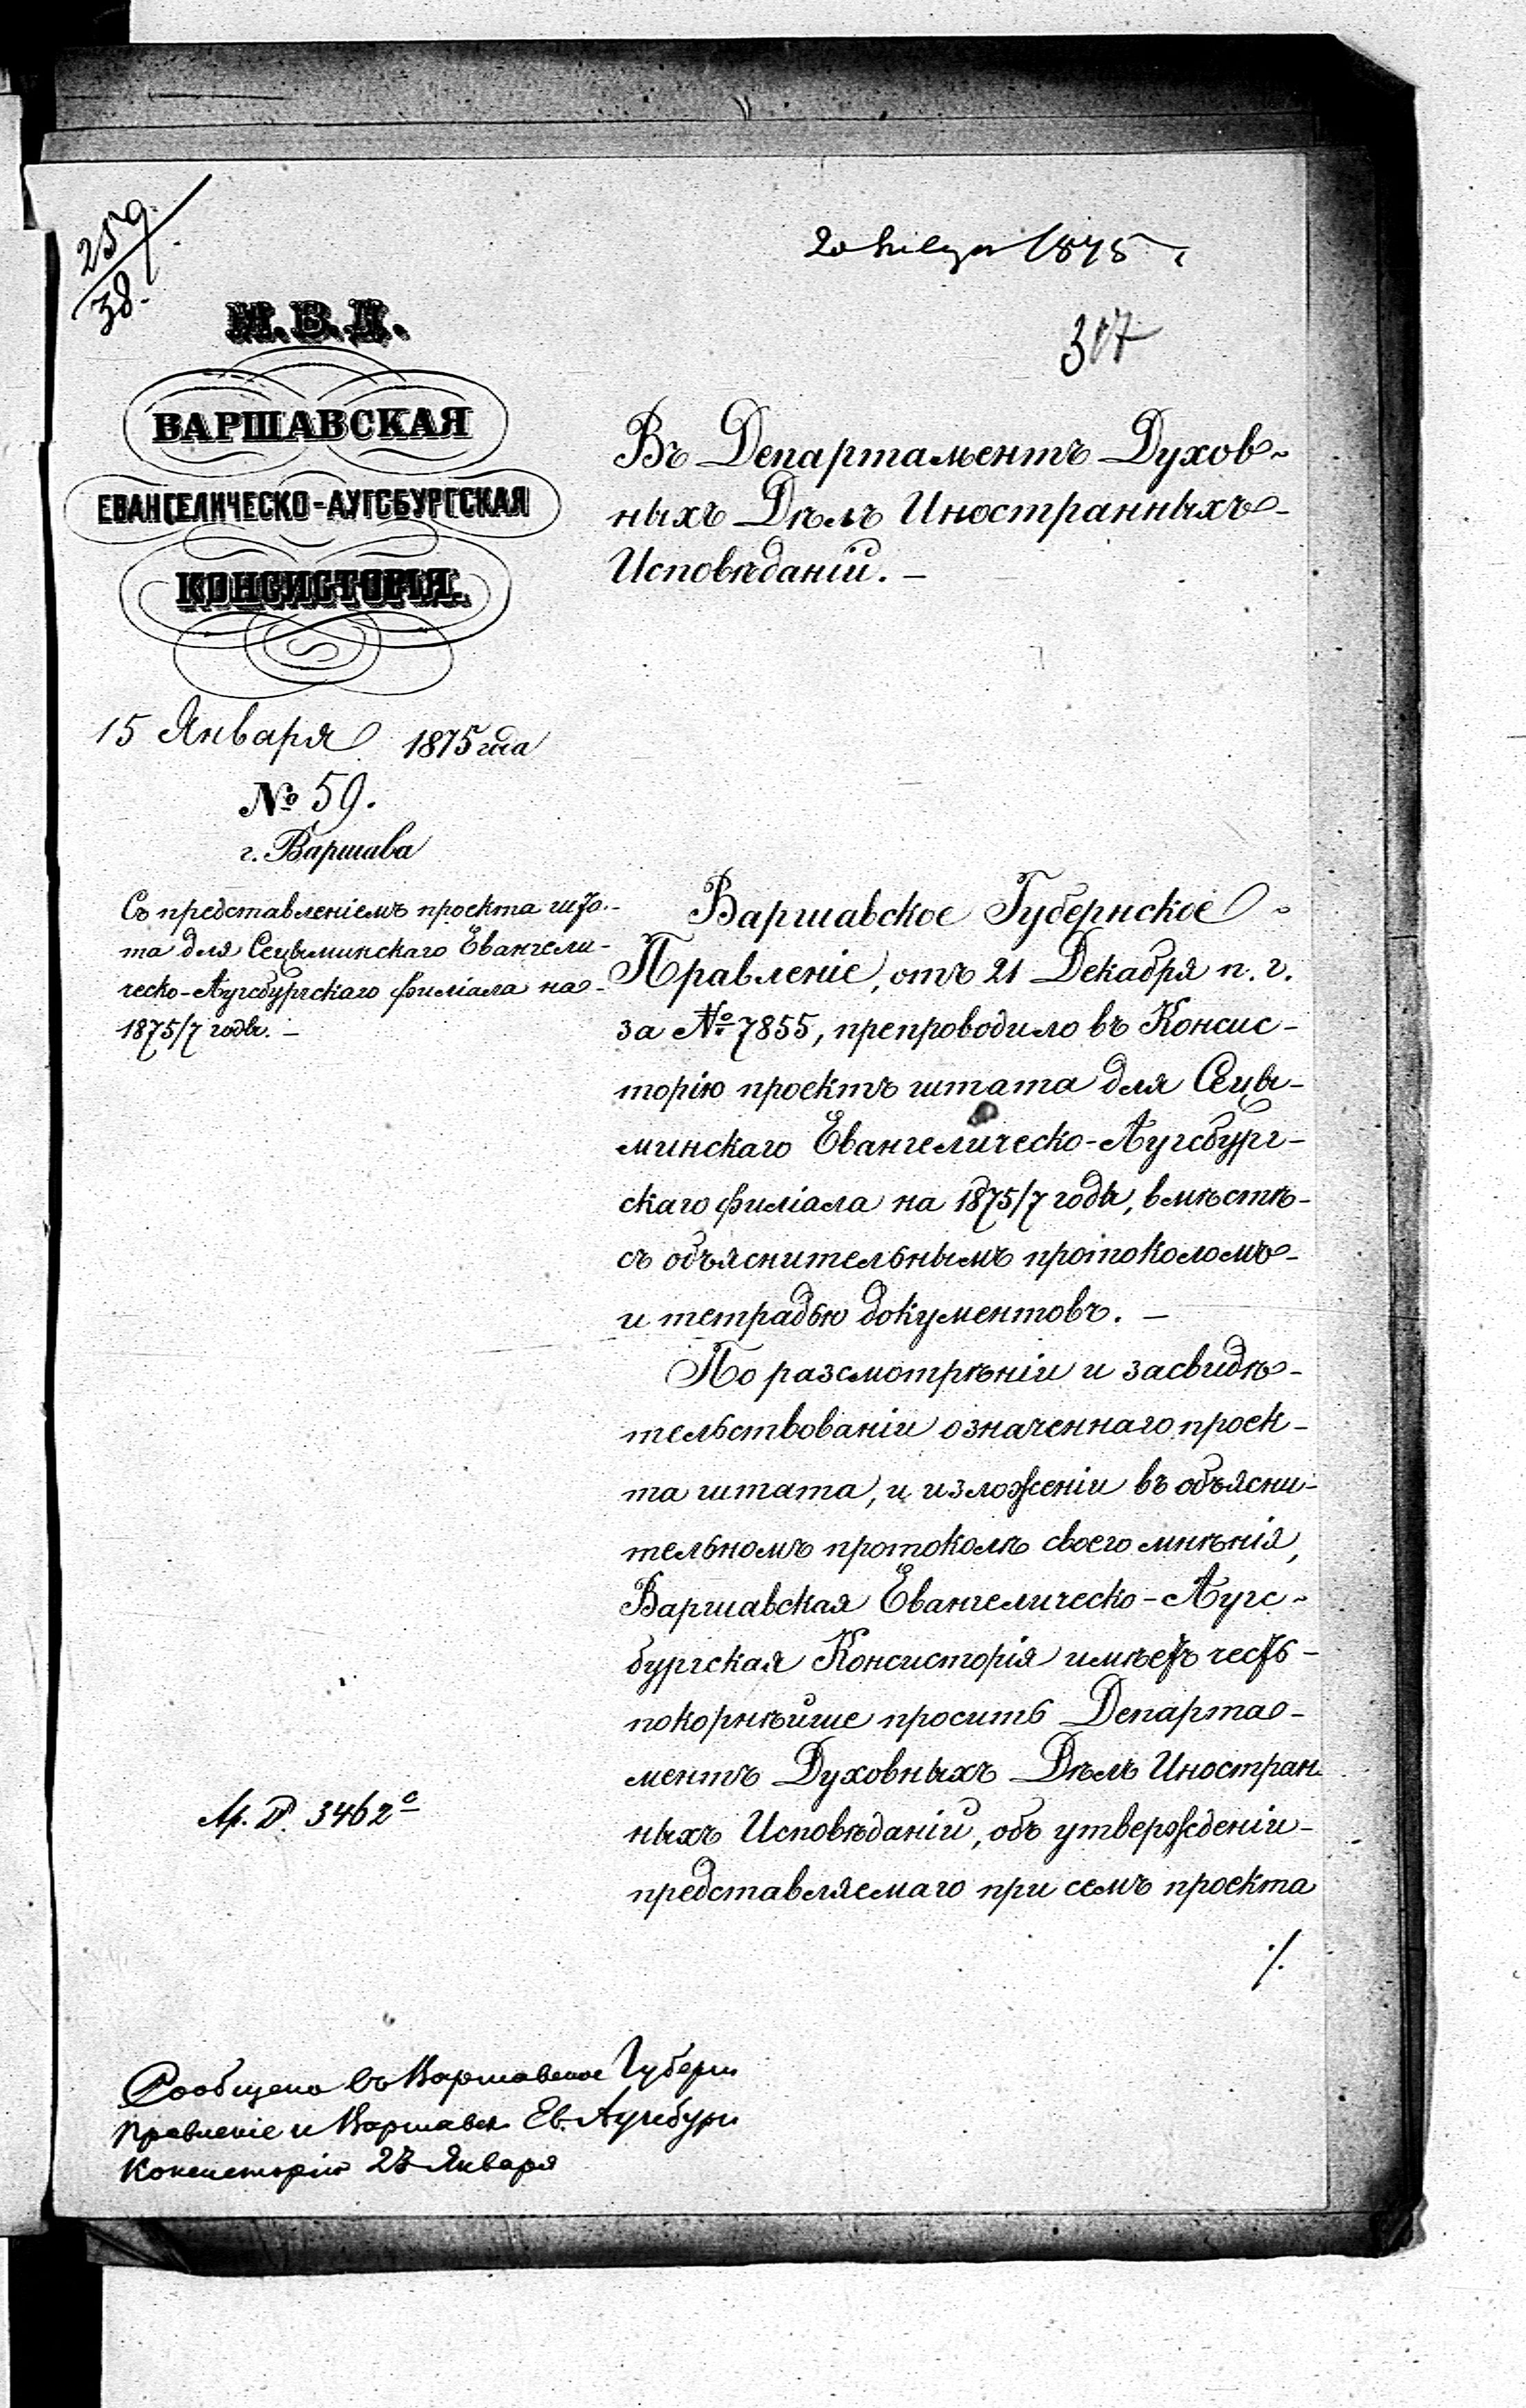 259
38.
20 Января 1875 г.
317
М.В.Д.
ВАРШАВСКАЯ
ЕВАНГЕЛИЧЕСКО-АУГСБУРГСКАЯ
КОНСИСТОРІЯ.
15 Января 1875 года
№ 59.
г. Варшава
Съ представленіемъ проекта шта-
та для Сецыминскаго Евангели-
ческо-Аугсбургскаго филіала на
1875/7 годы. —
Въ Департаментъ Духов-
ныхъ Дѣлъ Иностранныхъ
Исповѣданій. —
Варшавское Губернское
Правленіе, отъ 21 Декабря п. г.
за № 7855, препроводило въ Консис-
торію проектъ штата для Сецы-
минскаго Евангелическо-Аугсбург-
скаго филіала на 1875/7 годы, вмѣстѣ
съ объяснительнымъ протоколомъ
и тетрадью документовъ. —
По разсмотрѣніи и засвидѣ-
тельствованіи означеннаго проек-
та штата, и изложеніи въ объясни-
тельномъ протоколѣ своего мнѣнія,
Варшавская Евангелическо-Аугс-
бургская Консисторія имѣетъ честь
покорнѣйше просить Департа-
ментъ Духовныхъ Дѣлъ Иностран-
ныхъ Исповѣданій, объ утвержденіи
представляемаго при семъ проекта
./.
3462
Сообщено въ Варшавское Губерн
Правленіе и Варшавск Ев. Аугсбург
Консисторію 23 Января